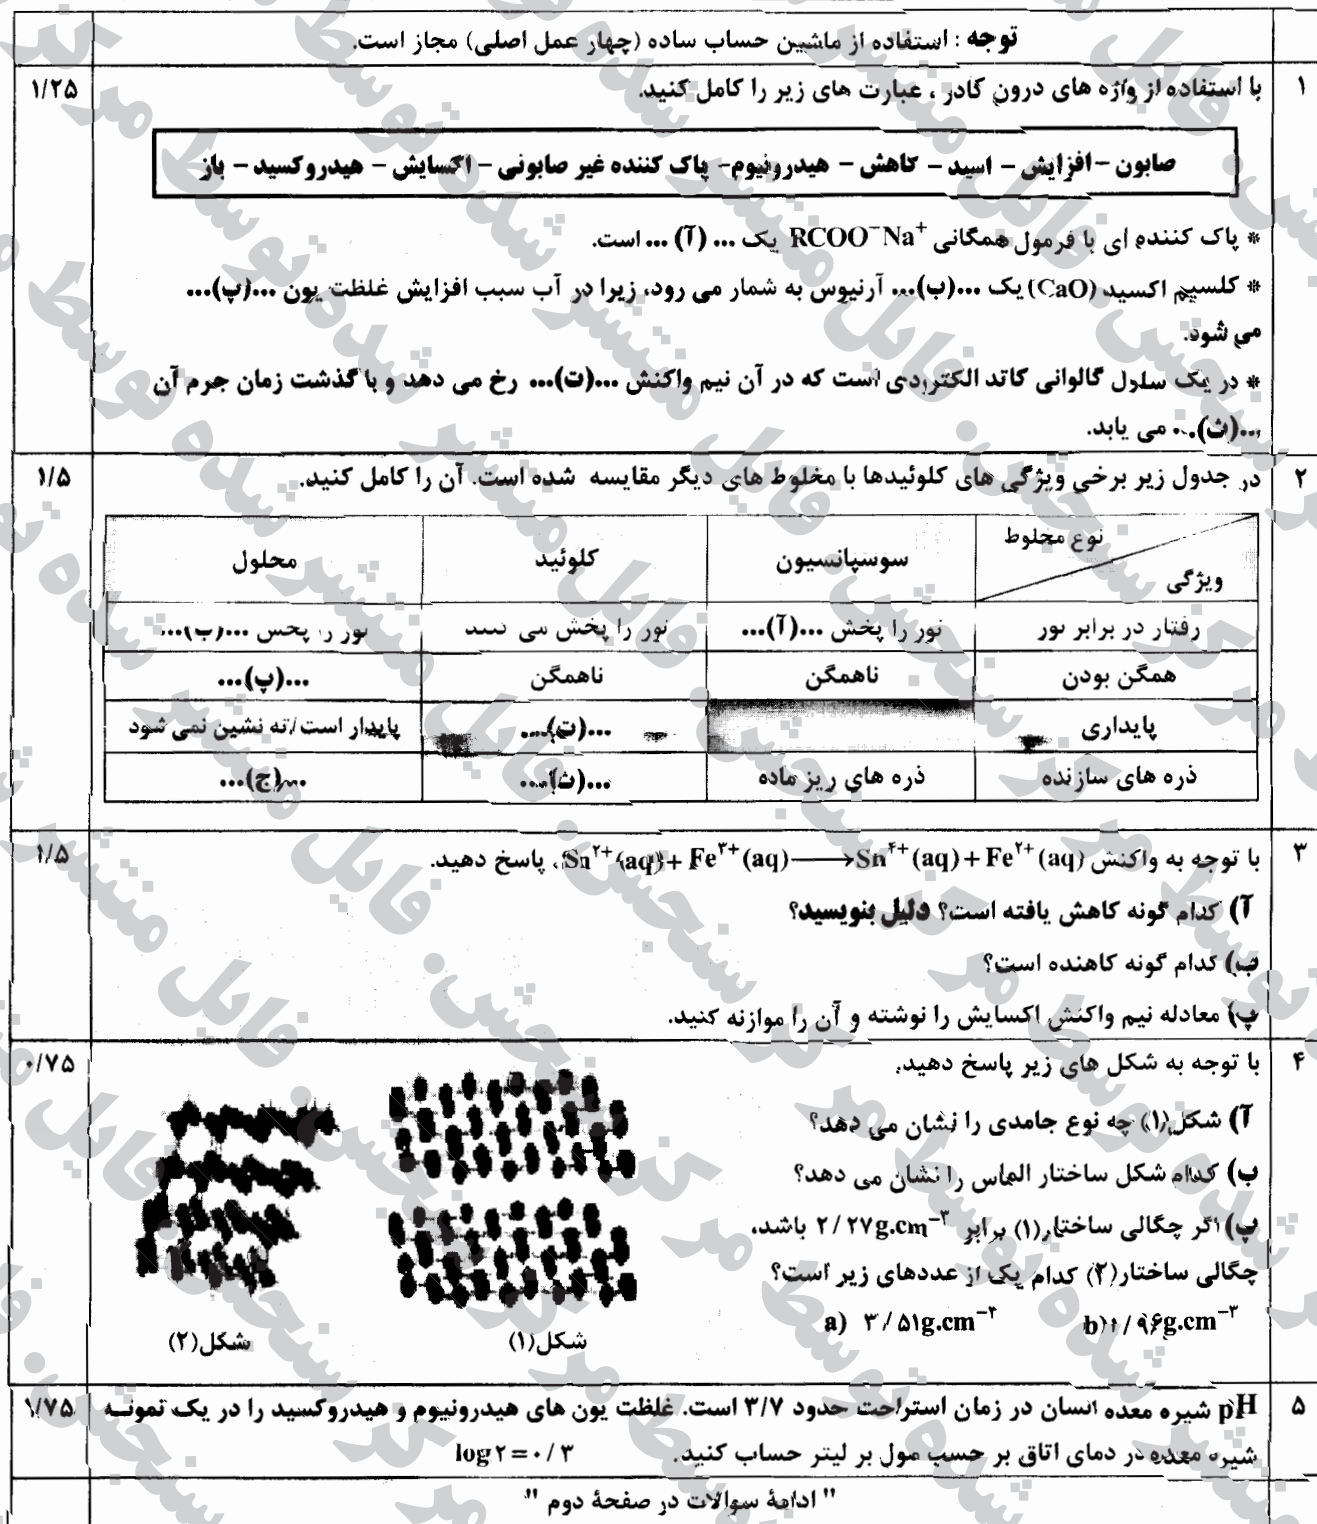 توجه : استفاده از ماشین حساب ساده (چهار عمل اصلی) مجاز است.
۱ با استفاده از واژه های درون کادر ، عبارت های زیر را کامل کنید. ۱/۲۵
صابون – افزایش – اسید – کاهش – هیدرونیوم – پاک کننده غیر صابونی – اکسایش – هیدروکسید – باز
* پاک کننده ای با فرمول همگانی RCOO⁻Na⁺ یک ... (آ) ... است.
* کلسیم اکسید (CaO) یک ...(ب)... آرنیوس به شمار می رود، زیرا در آب سبب افزایش غلظت یون ...(پ)...
می شود.
* در یک سلول گالوانی کاتد الکترودی است که در آن نیم واکنش ...(ت)... رخ می دهد و با گذشت زمان جرم آن
...(ث)... می یابد.
۲ در جدول زیر برخی ویژگی های کلوئیدها با مخلوط های دیگر مقایسه شده است. آن را کامل کنید. ۱/۵
نوع مخلوط
ویژگی سوسپانسیون کلوئید محلول
رفتار در برابر نور نور را پخش ...(آ)... نور را پخش می کنند نور را پخش ...(ب)...
همگن بودن ناهمگن ناهمگن ...(پ)...
پایداری ...(ت)... پایدار است/ته نشین نمی شود
ذره های سازنده ذره های ریز ماده ...(ث)... ...(ج)...
۳ با توجه به واکنش Sn²⁺(aq) + Fe³⁺(aq) ⟶ Sn⁴⁺(aq) + Fe²⁺(aq)، پاسخ دهید. ۱/۵
آ) کدام گونه کاهش یافته است؟ دلیل بنویسید؟
ب) کدام گونه کاهنده است؟
پ) معادله نیم واکنش اکسایش را نوشته و آن را موازنه کنید.
۴ با توجه به شکل های زیر پاسخ دهید. ۰/۷۵
آ) شکل(۱) چه نوع جامدی را نشان می دهد؟
ب) کدام شکل ساختار الماس را نشان می دهد؟
پ) اگر چگالی ساختار(۱) برابر ۲/۲۷g.cm⁻³ باشد،
چگالی ساختار(۲) کدام یک از عددهای زیر است؟
a) ۳/۵۱g.cm⁻³ b) ۱/۹۶g.cm⁻³
شکل(۱) شکل(۲)
۵ pH شیره معده انسان در زمان استراحت حدود ۳/۷ است. غلظت یون های هیدرونیوم و هیدروکسید را در یک نمونه ۱/۷۵
شیره معده در دمای اتاق بر حسب مول بر لیتر حساب کنید. log۲=۰/۳
" ادامهٔ سوالات در صفحهٔ دوم "